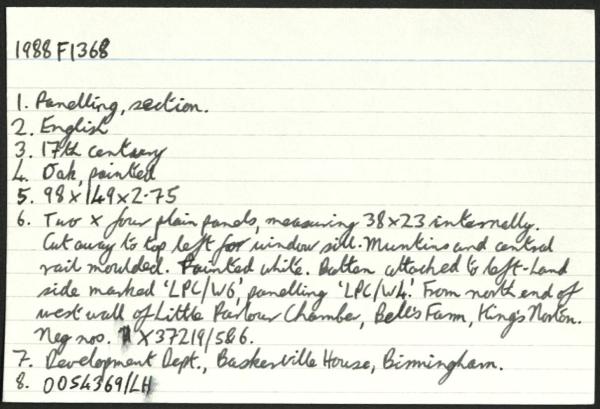 1988 F1368
1. Panelling, section.
2. English
3. 17th century
4. Oak, painted
5. 98 x 149 x 2.75
6. Two x four plain panels, measuring 38 x 23 internally.
Cut away to top left for window sill. Muntins and central
rail moulded. Painted white. Batten attached to left-hand
side marked 'LPC/W6', panelling 'LPC/W4'. From north end of
west wall of Little Parlour Chamber, Bell's Farm, King's Norton.
Neg nos. X37219/5&6.
7. Development Dept., Baskerville House, Birmingham.
8. 0054369/LH